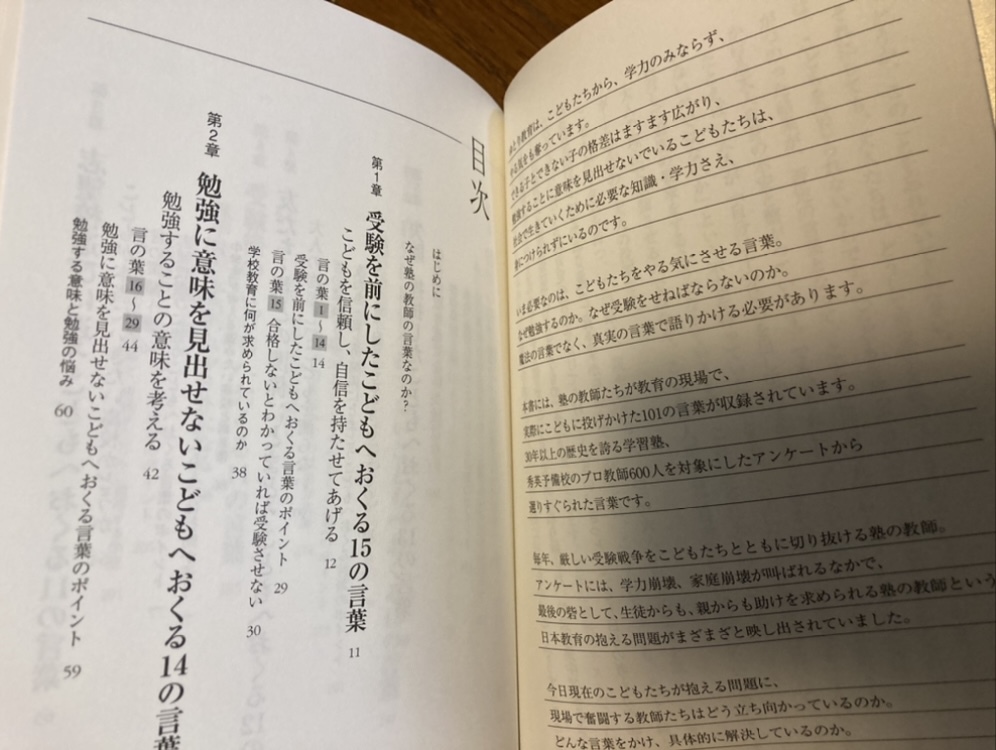 学力のみならず、
ゆとり教育は、こどもたちから、
やる気をも奪っています。
できる子とできない子の格差はますます広がり、
勉強することに意味を見出せないでいるこどもたちは、
社会で生きていくために必要な知識・学力さえ、
身につけられずにいるのです。
いま必要なのは、こどもたちをやる気にさせる言葉。
なぜ勉強するのか。なぜ受験をせねばならないのか。
魔法の言葉でなく、真実の言葉で語りかける必要があります。
本書には、塾の教師たちが教育の現場で、
実際にこどもに投げかけた101の言葉が収録されています。
30年以上の歴史を誇る学習塾、
秀英予備校のプロ教師600人を対象にしたアンケートから
選りすぐられた言葉です。
毎年、厳しい受験戦争をこどもたちとともに切り抜ける塾の教師。
アンケートには、学力崩壊、家庭崩壊が叫ばれるなかで、
最後の砦として、生徒からも、親からも助けを求められる塾の教師という
日本教育の抱える問題がまざまざと映し出されていました。
今日現在のこどもたちが抱える問題に、
現場で奮闘する教師たちはどう立ち向かっているのか。
どんな言葉をかけ、具体的に解決しているのか。
目次
はじめに
なぜ塾の教師の言葉なのか?
第1章 受験を前にしたこどもへおくる15の言葉 11
こどもを信頼し、自信を持たせてあげる 12
言の葉1～14 14
受験を前にしたこどもへおくる言葉のポイント 29
言の葉15 合格しないとわかっていれば受験させない 30
学校教育に何が求められているのか 38
第2章 勉強に意味を見出せないこどもへおくる14の言葉
勉強することの意味を考える 42
言の葉16～29 44
勉強に意味を見出せないこどもへおくる言葉のポイント 59
勉強する意味と勉強の悩み 60